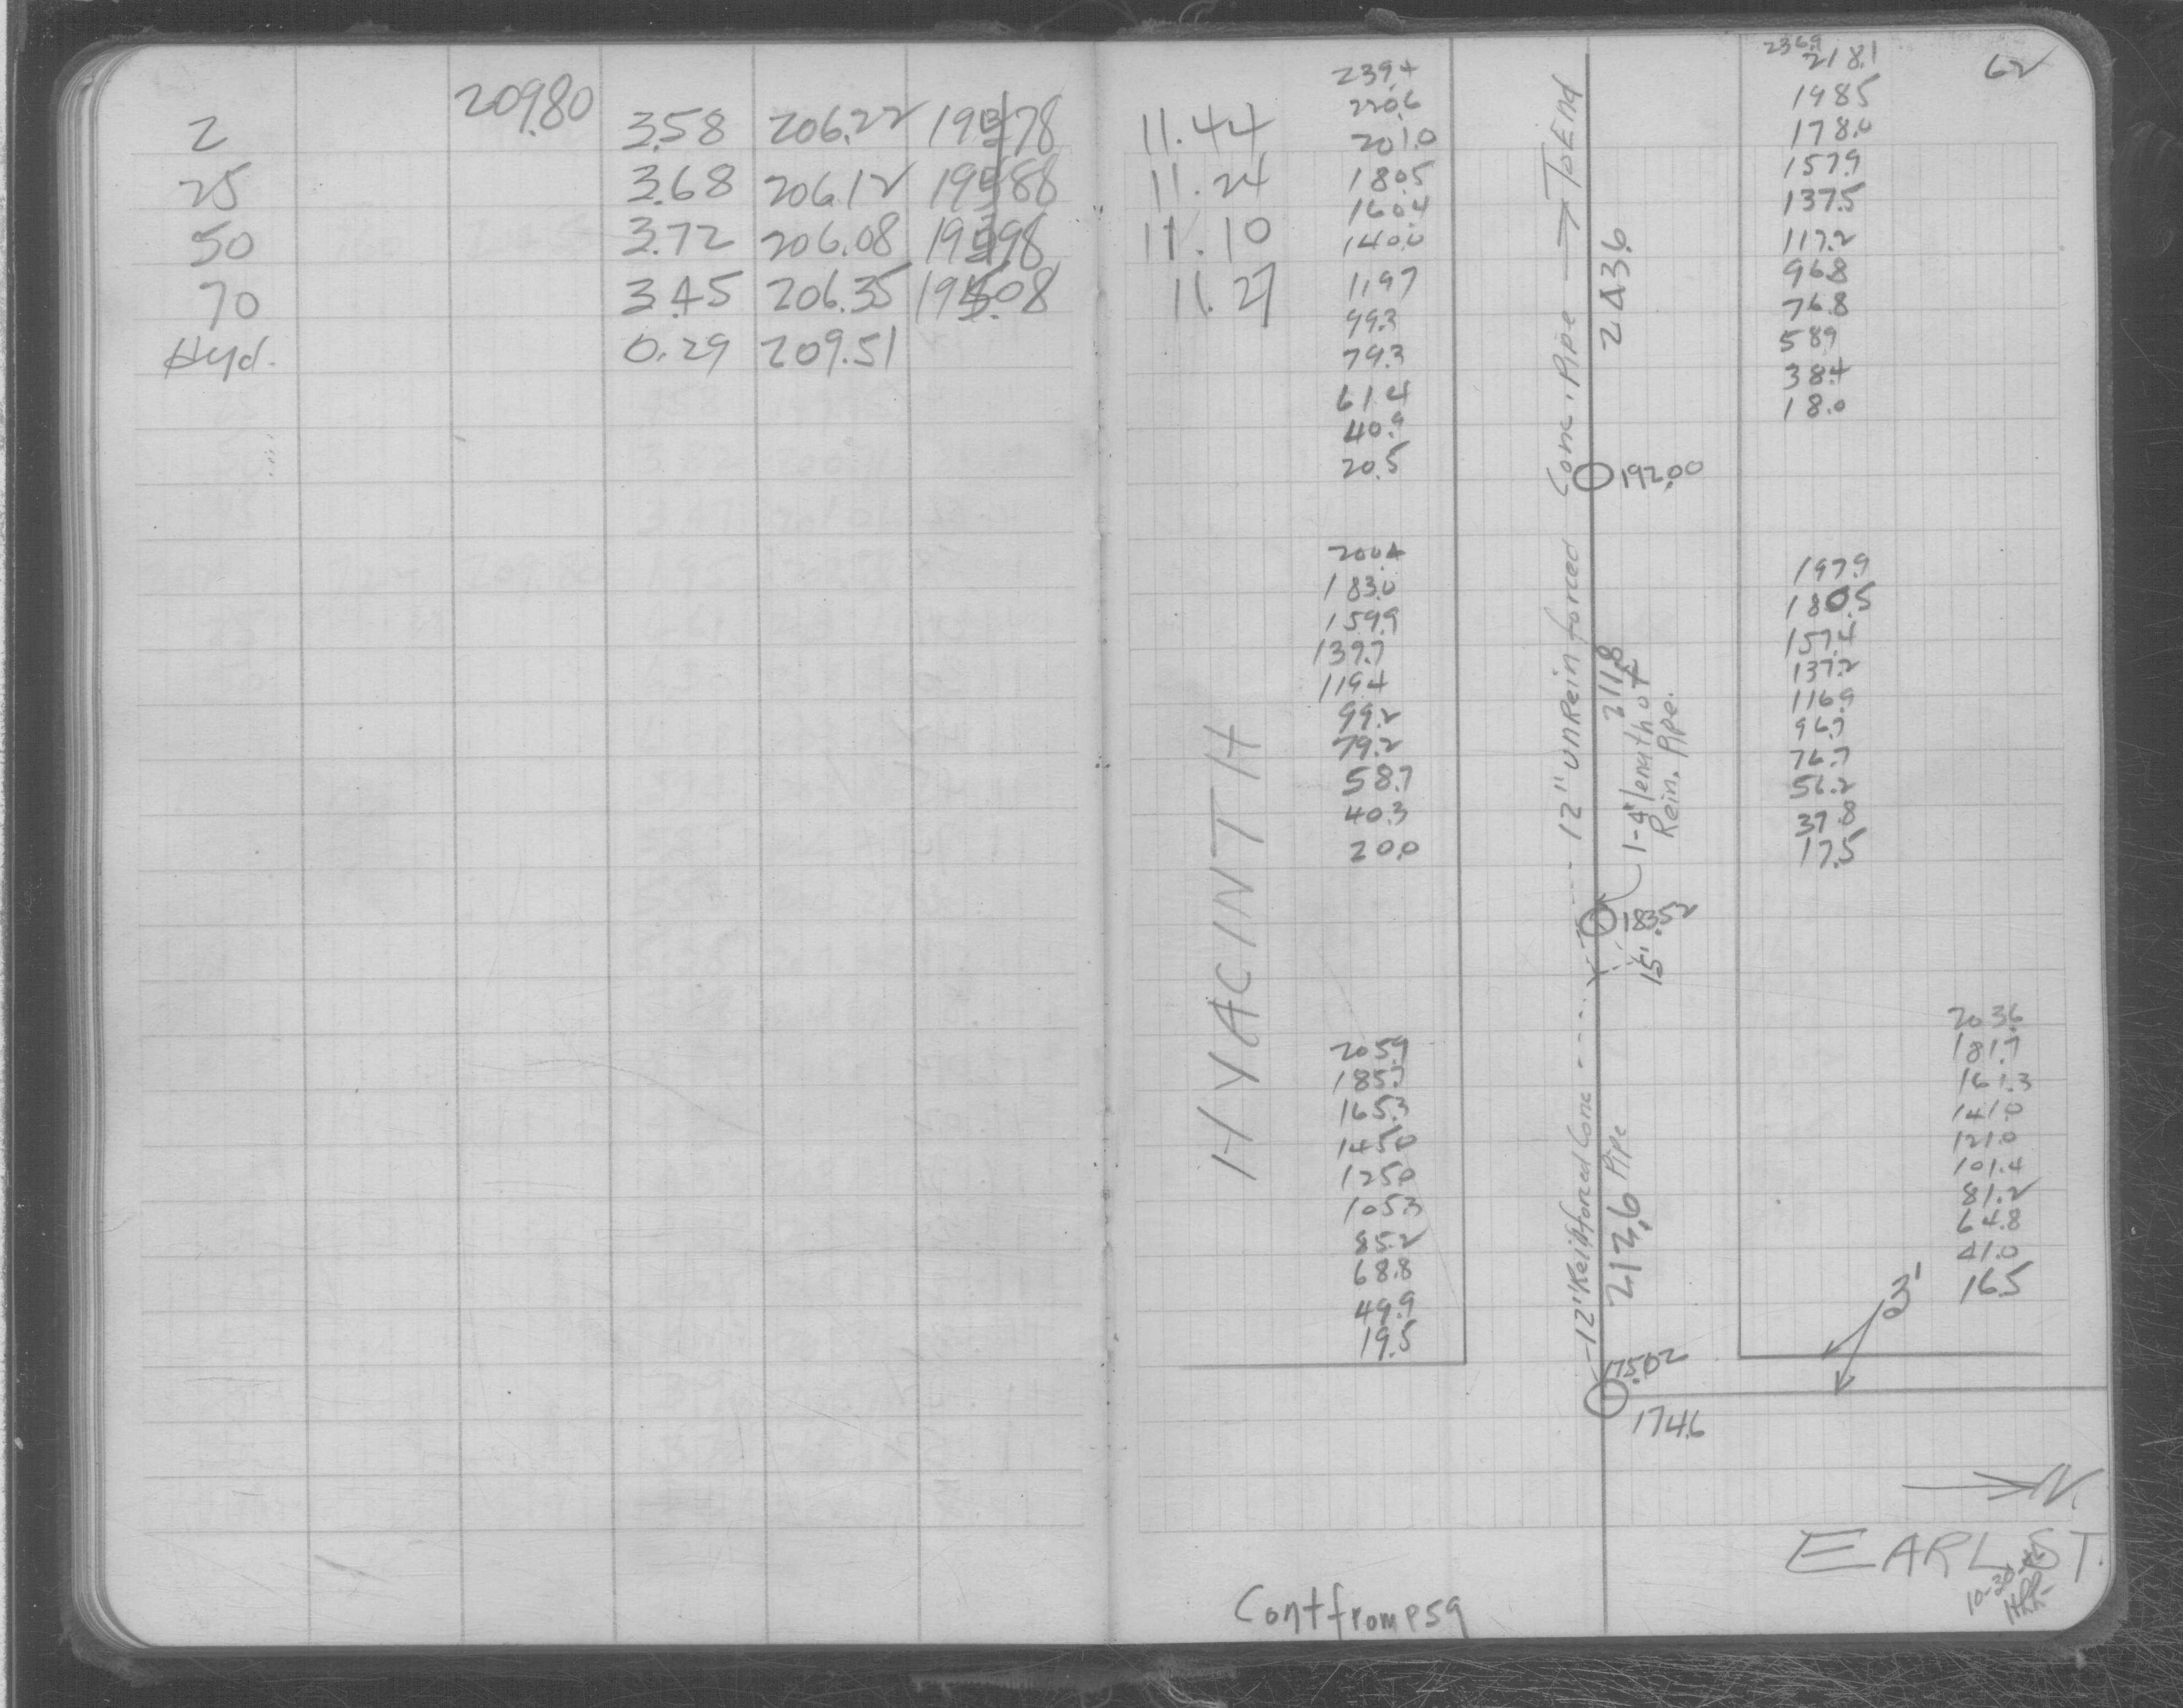 209.80
2 3.58 206.22 78 11.44
25 3.68 206.12 88 11.24
50 3.72 206.08 98 11.10
70 3.45 206.35 08 11.27
Hyd. 0.29 209.51
62
239.4
220.6
201.0
180.5
160.4
140.0
119.7
99.3
79.3
61.4
40.9
20.5
200.4
183.0
159.9
139.7
119.4
99.2
79.2
58.7
40.3
20.0
205.9
185.7
165.3
145.0
125.0
105.3
85.2
68.8
49.9
19.5
HYACINTH
12" unReinforced Conc. Pipe → To End
243.6
192.00
211.8
1-4' length of
Rein. Pipe.
183.52
15"
12" Reinforced Conc
Pipe
212.6
175.02
174.6
236.9
218.1
198.5
178.0
157.9
137.5
117.2
96.8
76.8
58.9
38.4
18.0
197.9
180.5
157.4
137.2
116.9
96.7
76.7
56.2
37.8
17.5
203.6
181.7
161.3
141.0
121.0
101.4
81.2
64.8
41.0
16.5
3'
N.
EARL ST.
Cont from P59